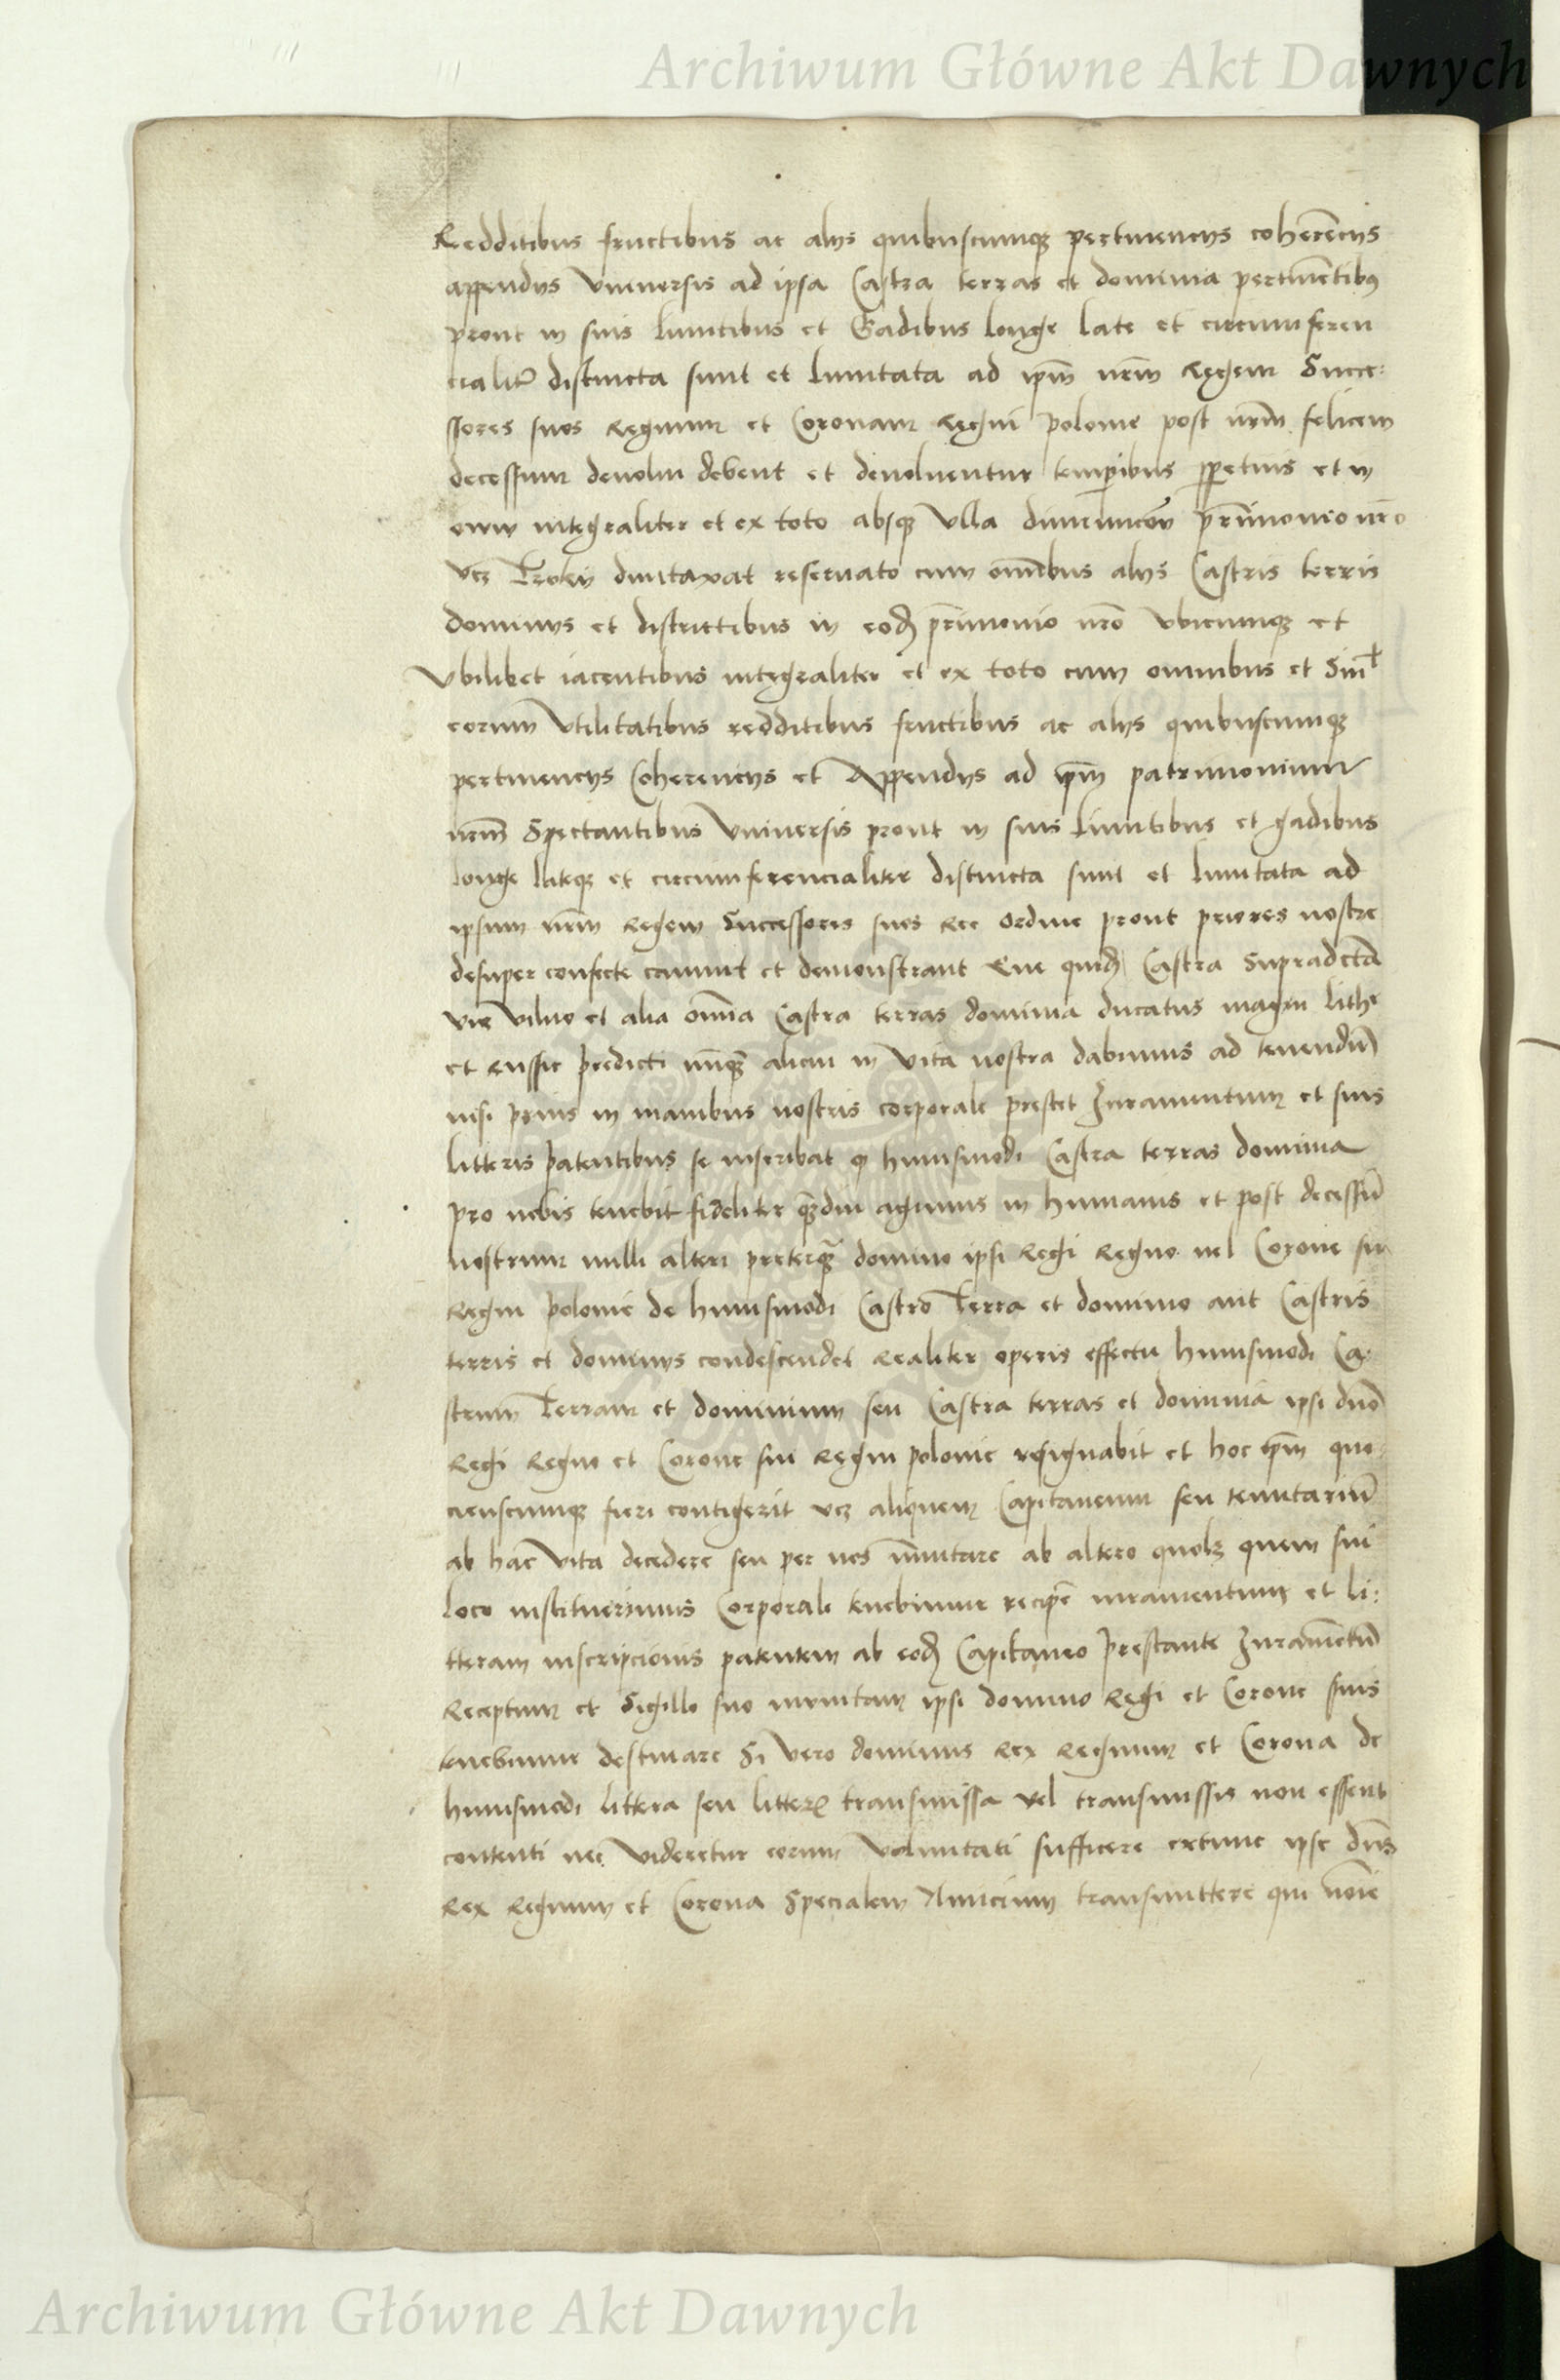 Archiwum Główne Akt Dawnych
Redditibus fructibus ac alijs quibuscumqꝫ pertinencijs coherēcijs
appendijs vniuersis ad ipsa Castra terras et dominia pertinētibꝰ
prout in suis limitibus et Gadibus longe late et circumferen
cialit̄ distincta sunt et limitata ad ip̄m nr̄m Regem Succe:
ssores suos Regnum et Coronam Regni polonie post nr̄m felicem
decessum deuolui debent et deuoluentur temp̄ibus ꝑpetuis et in
euum integraliter et ex toto absqꝫ vlla diminucōn pr̄imonio nr̄o
vcꝫ Troky dumtaxat reseruato cum om̄ibus alijs Castris terris
dominijs et districtibus in eod̄ pr̄imonio nr̄o vbicumqꝫ et
vbilibet iacentibus integraliter et ex toto cum omnibus et Sin̄l
eorum vtilitatibus redditibus fructibus ac alijs quibuscumqꝫ
pertinencijs Coherencijs et Appendijs ad ip̄m patrimonium
nr̄m Spectantibus vniuersis prout in suis limitibus et gadibus
longe lateqꝫ et circumferencialiter distincta sunt et limitata ad
ipsum nr̄m Regem Successores suos ordine prout priores nostre
desuper confecte canunt et demonstrant quid̄ Castra Supradc̄ta
vilno et alia om̄ia Castra terras dominia ducatus magni lith
et russie predicti nūqꝫ alicui in vita nostra dabimus ad tenendū
nisi prius in manibus nostris corporale prestet Juramentum et suis
litteris patentibus se inscribat ꝙ huiusmodi Castra terras dominia
pro nobis tenebit fideliter qꝫdiu agimus in humanis et post decessū
nostrum nulli alteri preterqꝫ domino ipsi Regi Regno vel Corone sui
Regni polonie de huiusmodi Castro Terra et dominio aut Castris
terris et dominijs condescendet realiter operis effectu huiusmodi Ca:
strum Terram et dominium seu Castra terras et dominia ipsi dn̄o
Regi Regno et Corone sui Regni polonie resignabit et hoc ip̄m quo:
cienscumqꝫ fieri contigerit vcꝫ aliquem Capitaneum seu tenutariū
ab hac vita decedere seu per nos īmutare ab altero quolꝫ quem sui
loco instituerimus Corporale tenebimur recip̄e iuramentum et li:
tteram inscripcionis patentem ab eod̄ Capitaneo prestante Juramētū
Receptum et Sigillo suo munitam ipsi domino Regi et Corone suis
tenebimur destinare Si vero dominus Rex Regnum et Corona de
huiusmodi littera seu litteris transmissa vel transmissis non essent
contenti nec videretur eorum voluntati sufficere extunc ipse dn̄s
Rex Regnum et Corona Specialem Amicum transmittere qui nōie
Archiwum Główne Akt Dawnych